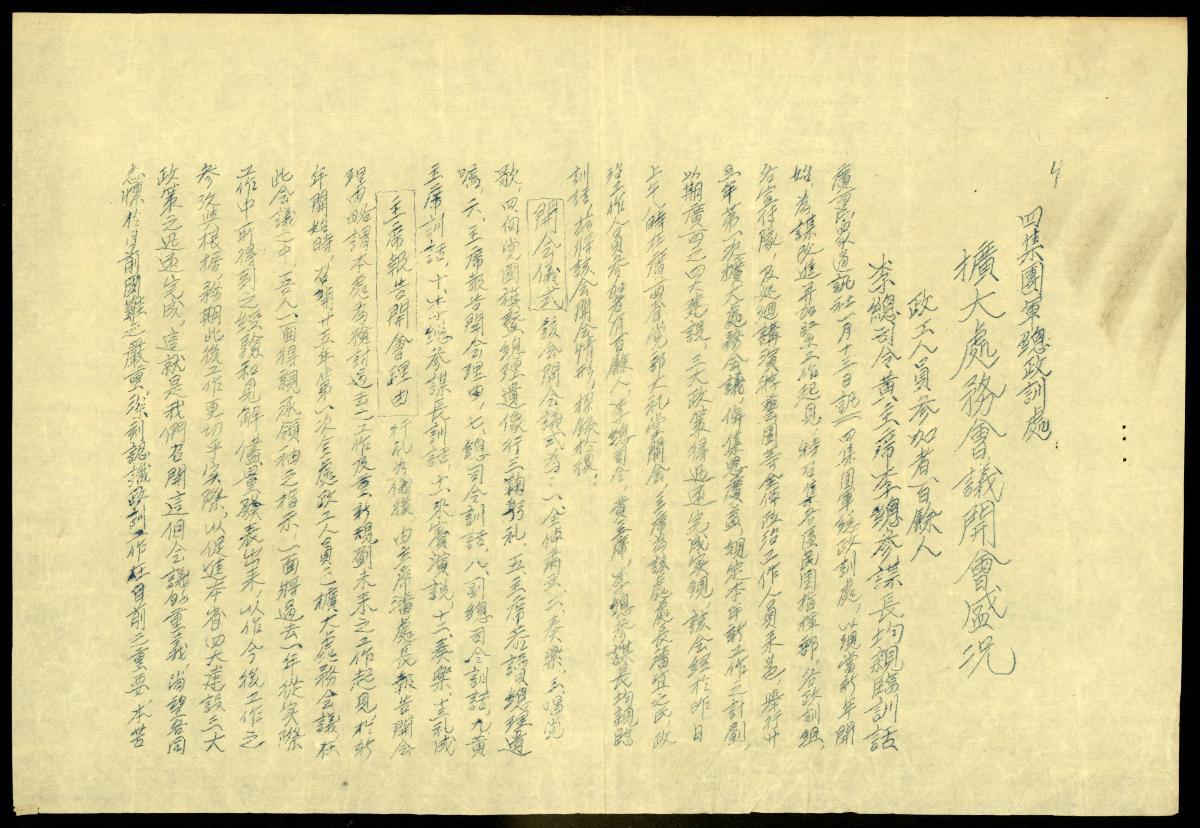 四集團軍總政訓處
擴大處務會議開會盛况
政工人員參加者百餘人
李總司令黃主席李總參謀長均親臨訓話
廣西民眾通訊社一月十三日訊 四集團軍總政訓處，以現當新年開
始，為謀改進并加緊工作起見，特召集各區民團指揮部，各政訓組，
各宣传隊，及巡迴講演游藝團等全体政治工作人員来邕，舉行廿
五年第一次擴大處務會議，俾集思廣益，規定本年新工作之計劃，
以期廣西之四大建設，三大政策得迅速完成实現，該会经於昨日
上午九時在擴西省党部大礼堂開会，主席為該處處長潘宜之，民政
班工作人員参加者百餘人，李總司令，黃主席，李總參謀長均親臨
訓話，茲将該会開会情形，探錄於後：
開会儀式 該会開会議式為：一，全体肅立，二，奏樂，三，唱党
歌，四，向党國旗暨總理遺像行三鞠躬礼，五，主席恭讀總理遺
囑，六，主席報告開会理由，七，總司令訓話，八，副總司令訓話，九，黃
主席訓話，十，李總參謀長訓話，十一，來賓演說，十二，奏樂，十三，礼成
主席報告開會理由 行礼如儀後，由主席潘處長報告開会
理由，略謂本處為檢討過去之工作及重新規劃未来之工作起見，於新
年開始時，召開廿五年第一次全處政工人員之擴大處務会議，在
此会議之中，吾人一面得親承領袖之指示，一面將過去一年從实際
工作中所得到之经驗和見解，儘量發表出来，以作今後工作之
參攷與根据，務期此後工作更切乎实際，以促進本省四大建設三大
政策之迅速完成，這就是我們召開這個会議的重義，尚望各同
志懍於目前國難之嚴重，深刻認識政訓工作在目前之重要，本苦